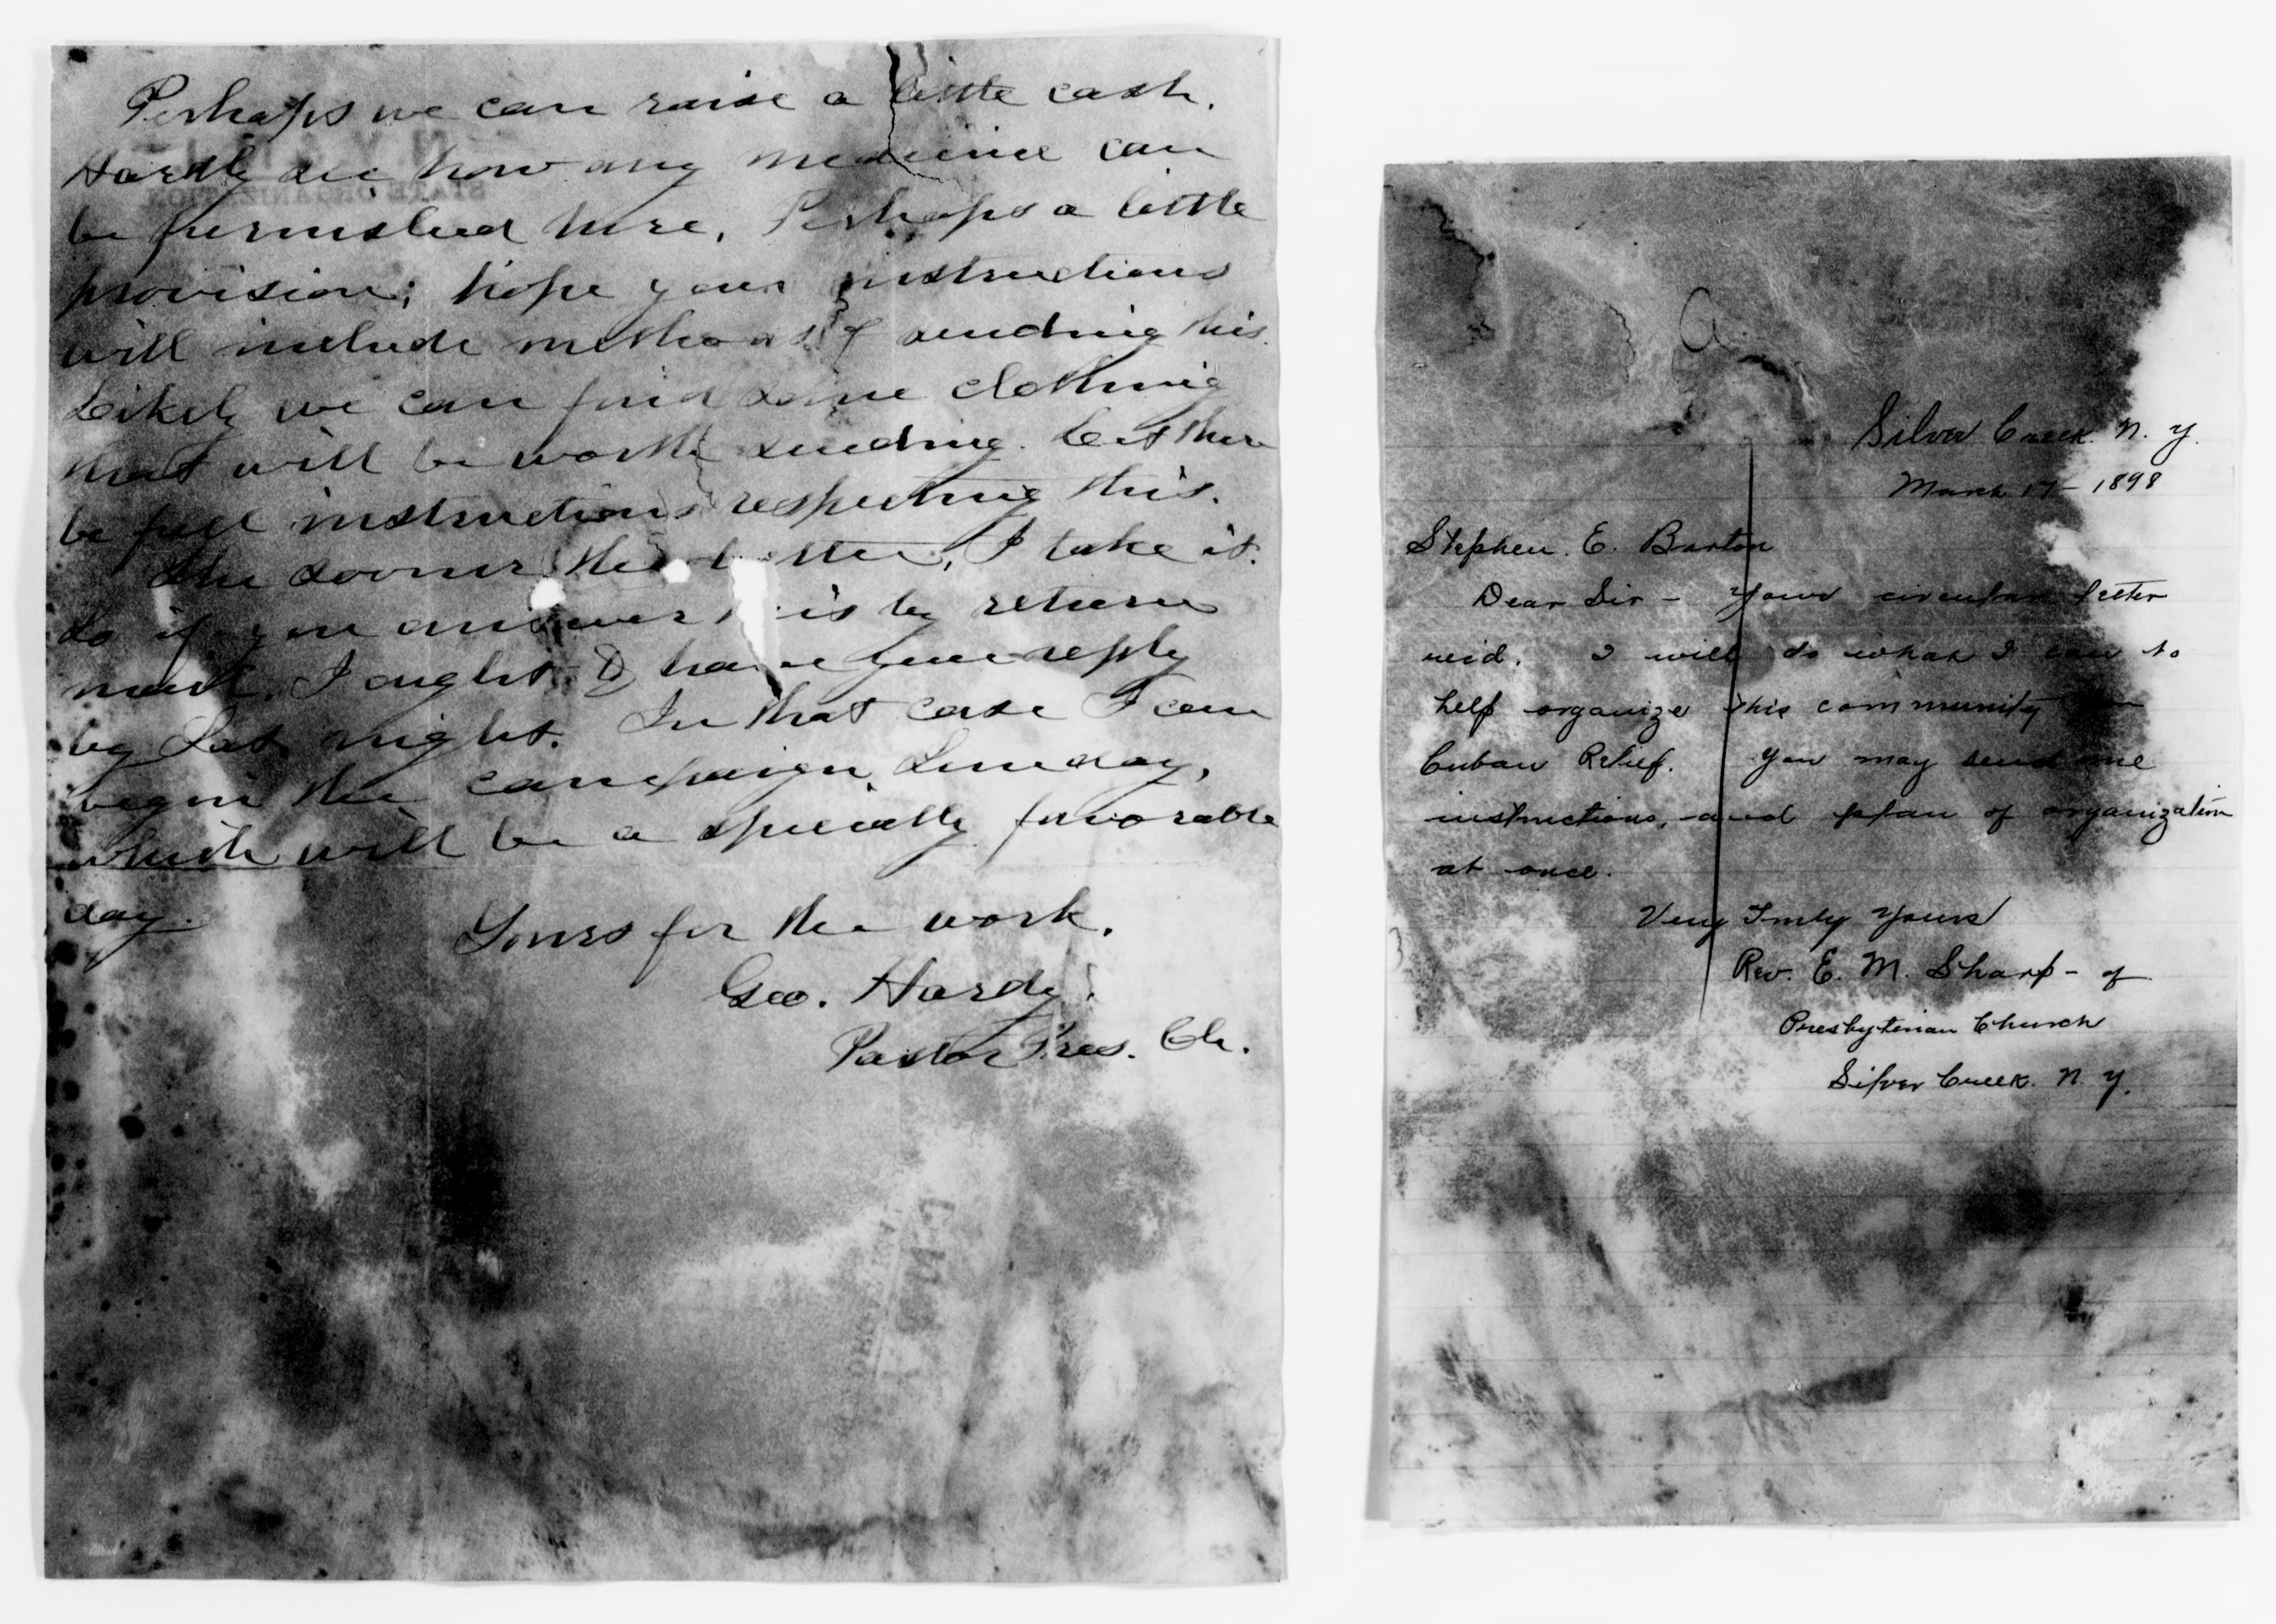 Perhaps we can raise a little cash.
Hardly see how any medicine can
be furnished here. Perhaps a little
provision; hope your instructions
will include methods of sending this.
Likely we can find some clothing
that will be worth sending. Let there
be full instructions respecting this.
The sooner the better, I take it.
So if you answer this by return
mail, I ought to have your reply
by Sat night. In that case I can
begin the campaign Sunday,
which will be a specially favorable
day.
Yours for the work.
Geo. Hardy.
Pastor Pres. Ch.
Silver Creek. N. Y.
March 17 - 1898
Stephen. E. Barton
Dear Sir - Your circular letter
recd. I will do what I can to
help organize this community
Cuban Relief. You may send me
instructions, and plan of organization
at once.
Very Truly Yours
Rev. E. M. Sharp - of
Presbyterian Church
Silver Creek. N. Y.